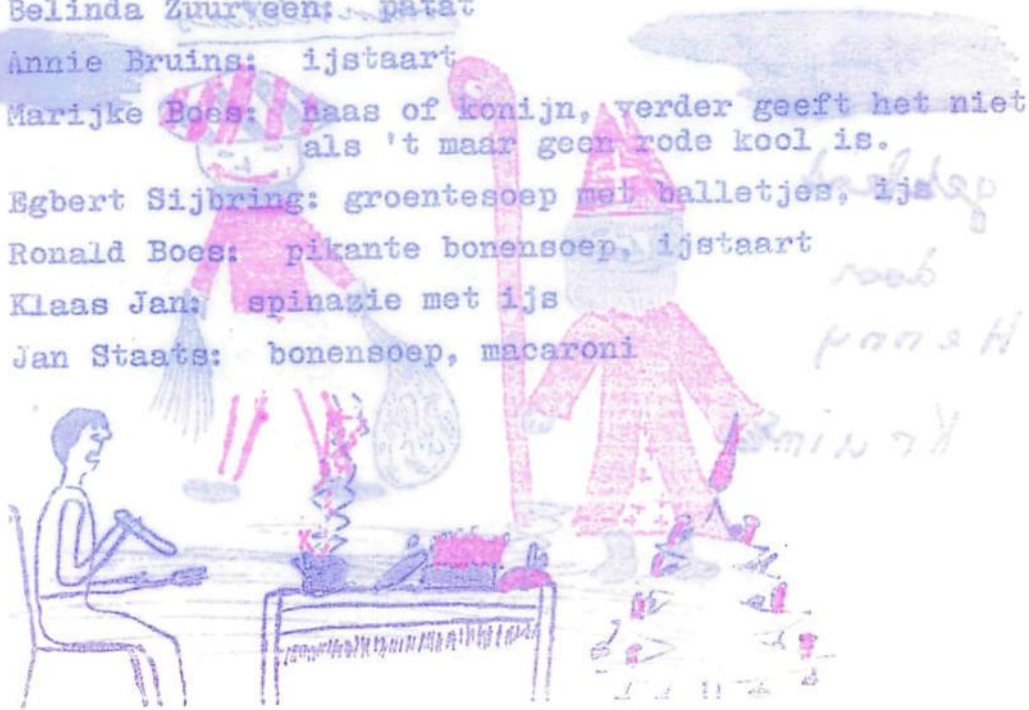 Belinda Zuurveen: patat
Annie Bruins: ijstaart
Marijke Boes: haas of konijn, verder geeft het niet
als 't maar geen rode kool is.
Egbert Sijbring: groentesoep met balletjes, ijs
Ronald Boes: pikante bonensoep, ijstaart
Klaas Jan: spinazie met ijs
Jan Staats: bonensoep, macaroni
door
Henny